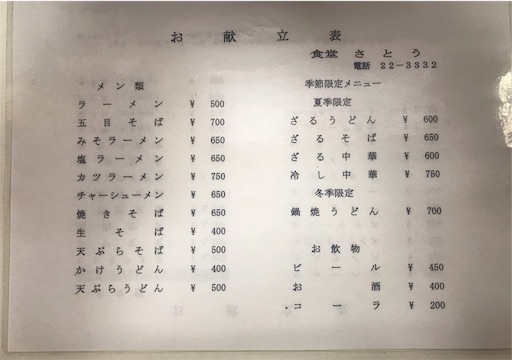 お献立表
食堂 さとう
電話 22-3332
メン類
ラーメン ¥ 500
五目そば ¥ 700
みそラーメン ¥ 650
塩ラーメン ¥ 650
カツラーメン ¥ 750
チャーシューメン ¥ 650
焼きそば ¥ 650
生そば ¥ 400
天ぷらそば ¥ 500
かけうどん ¥ 400
天ぷらうどん ¥ 500
季節限定メニュー
夏季限定
ざるうどん ¥ 600
ざるそば ¥ 650
ざる中華 ¥ 600
冷し中華 ¥ 750
冬季限定
鍋焼うどん ¥ 700
お飲物
ビール ¥ 450
お酒 ¥ 400
コーラ ¥ 200